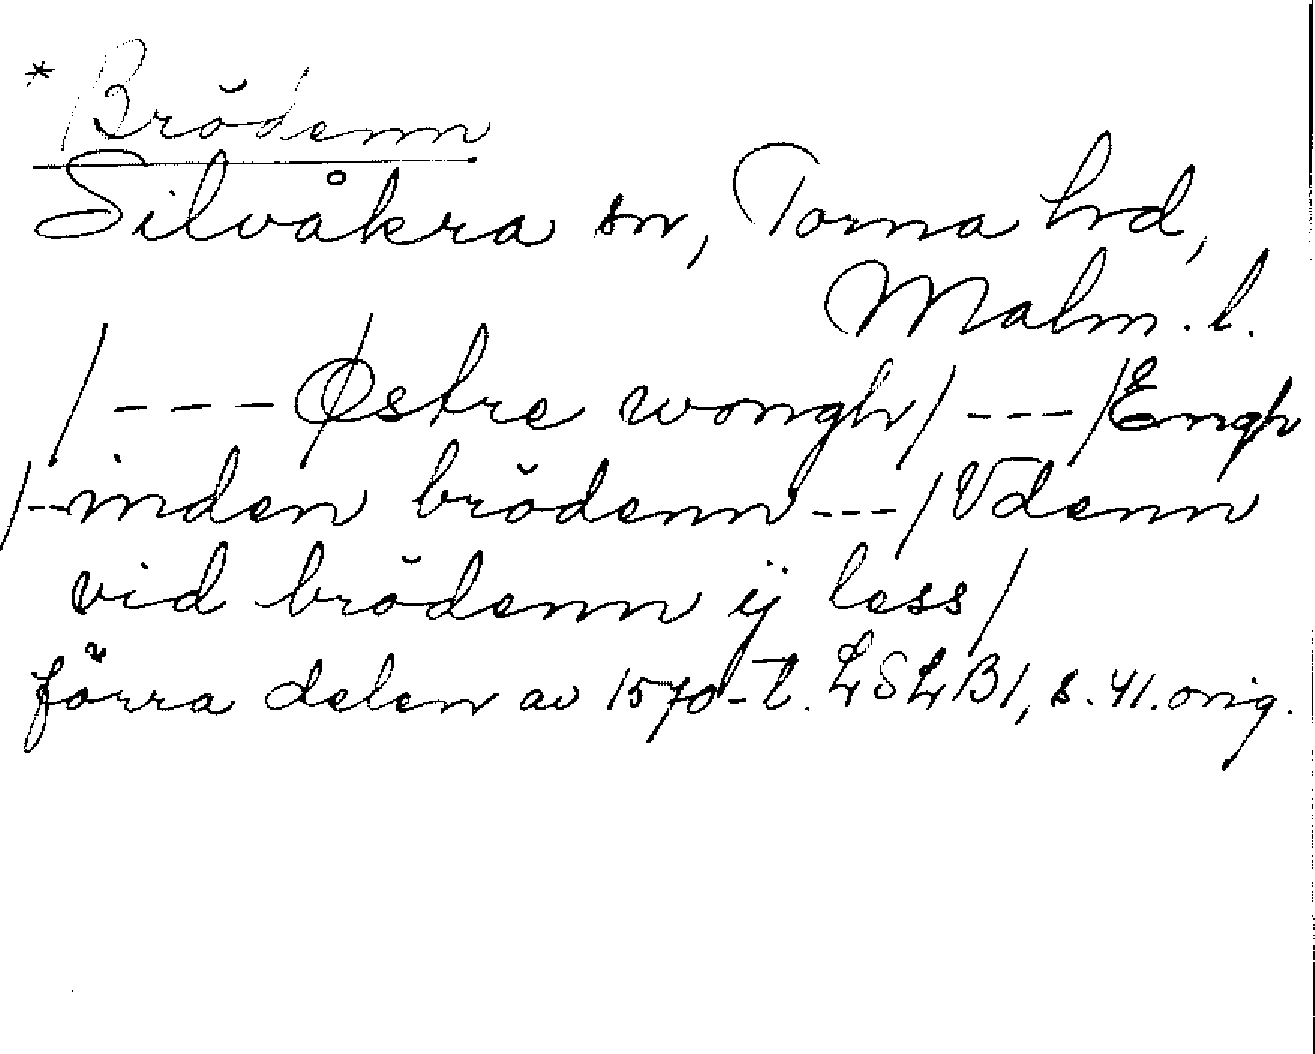 * Brŏdenn
Silvåkra sn, Torna hd,
Malm. l.
/ --- Østre wongh / --- / Engh
/ -- inden brŏdenn --- / Vdenn
vid brŏdenn ij less /
förra delen av 1570-t. LSLB1, s. 41. orig.